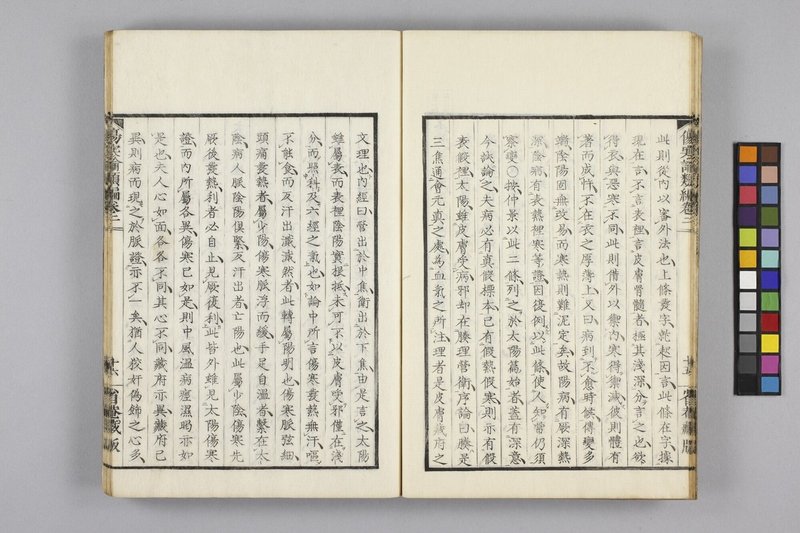 此則從內以審外法也上條發字乾起因言此條在字據
現在言不言表裡言皮膚骨髓者極其淺深分言之也欲
得衣與惡寒不同此則借外以禦內寒得禦減彼則體有
著而成忰不在衣之厚薄上又曰病到不愈時候傳變多
端陰陽固無改易而寒熱則難泥定矣故陽病有厥深熱
深陰病有表熱裡寒等證因復例以此條使人知當仍須
察變〇按仲景以此二條列之於太陽篇始者蓋有深意
今試論之夫病必有真假標本已有假熱假寒則亦有假
表假裡太陽雖皮膚受病邪却在腠理營衛序論曰腠是
三焦通會元真之處為血氣之所注理者是皮膚藏府之
傷寒論類編卷二
十五
文理也內經曰營出於中焦衛出於下焦由是言之太陽
雖屬表而表裡陰陽實提抵未可不以皮膚受邪僅在淺
分而照料及六經之氣也如論中所言傷寒發熱無汗嘔
不能食而反汗出濈濈然者此轉屬陽明也傷寒脈弦細
頭痛發熱者屬少陽傷寒脈浮而緩手足自溫者繫在太
陰病人脈陰陽俱緊反汗出者亡陽也此屬少陰傷寒先
厥後發熱利者必自止見厥復利此皆外雖見太陽傷寒
證而內所屬各異傷寒已如是則中風溫病痙濕暍亦如
是也夫人心如面各各不同其心不同藏府亦異藏府已
異則病而現之於脈證亦不一矣猶人挾奸偽飾之心多
傷寒論類編卷二
十六
省菴藏版